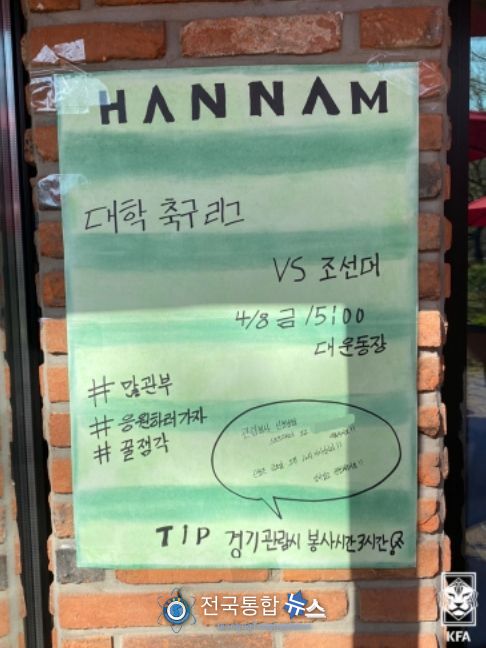 HANNAM
대학 축구리그
VS 조선대
4/8 금 15:00
대운동장
# 많관부
# 응원하러가자
# 꿀잼각
TIP 경기관람시 봉사시간 3시간
전국통합뉴스
KFA